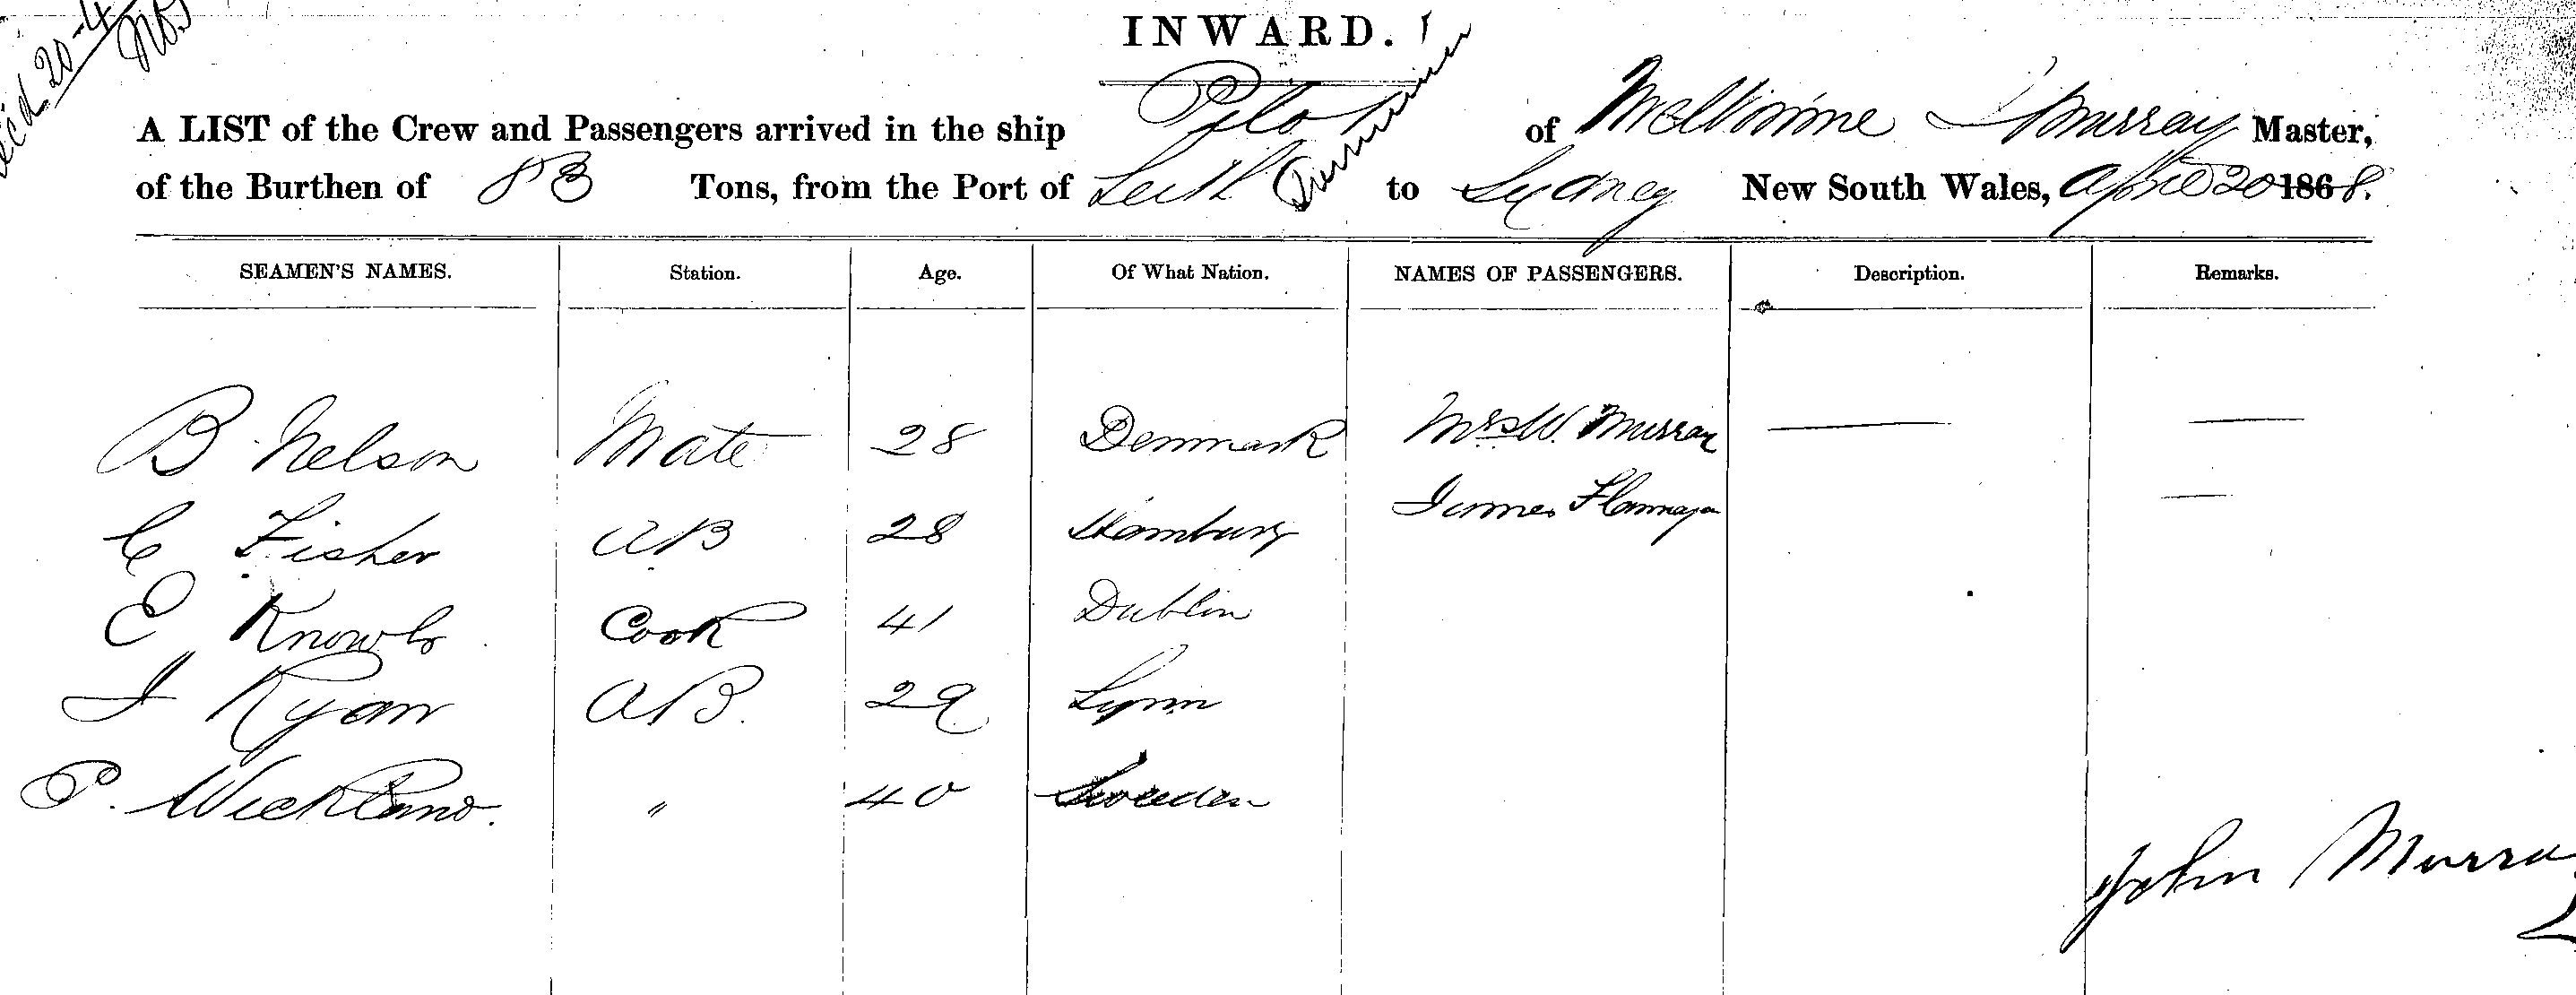 INWARD.
A LIST of the Crew and Passengers arrived in the ship Pilot of Melbourne J Murray Master,
of the Burthen of 83 Tons, from the Port of Leith to Sydney New South Wales, April 20 1868.
SEAMEN'S NAMES. Station. Age. Of What Nation. NAMES OF PASSENGERS. Description. Remarks.
B Nelson Mate 28 Denmark Mrs W. Murray
C Fisher AB 28 Hamburg James Flannagan
E Knowls Cook 41 Dublin
J Ryan AB. 29 Lynn
P. Wickland. " 40 Sweden
John Murray